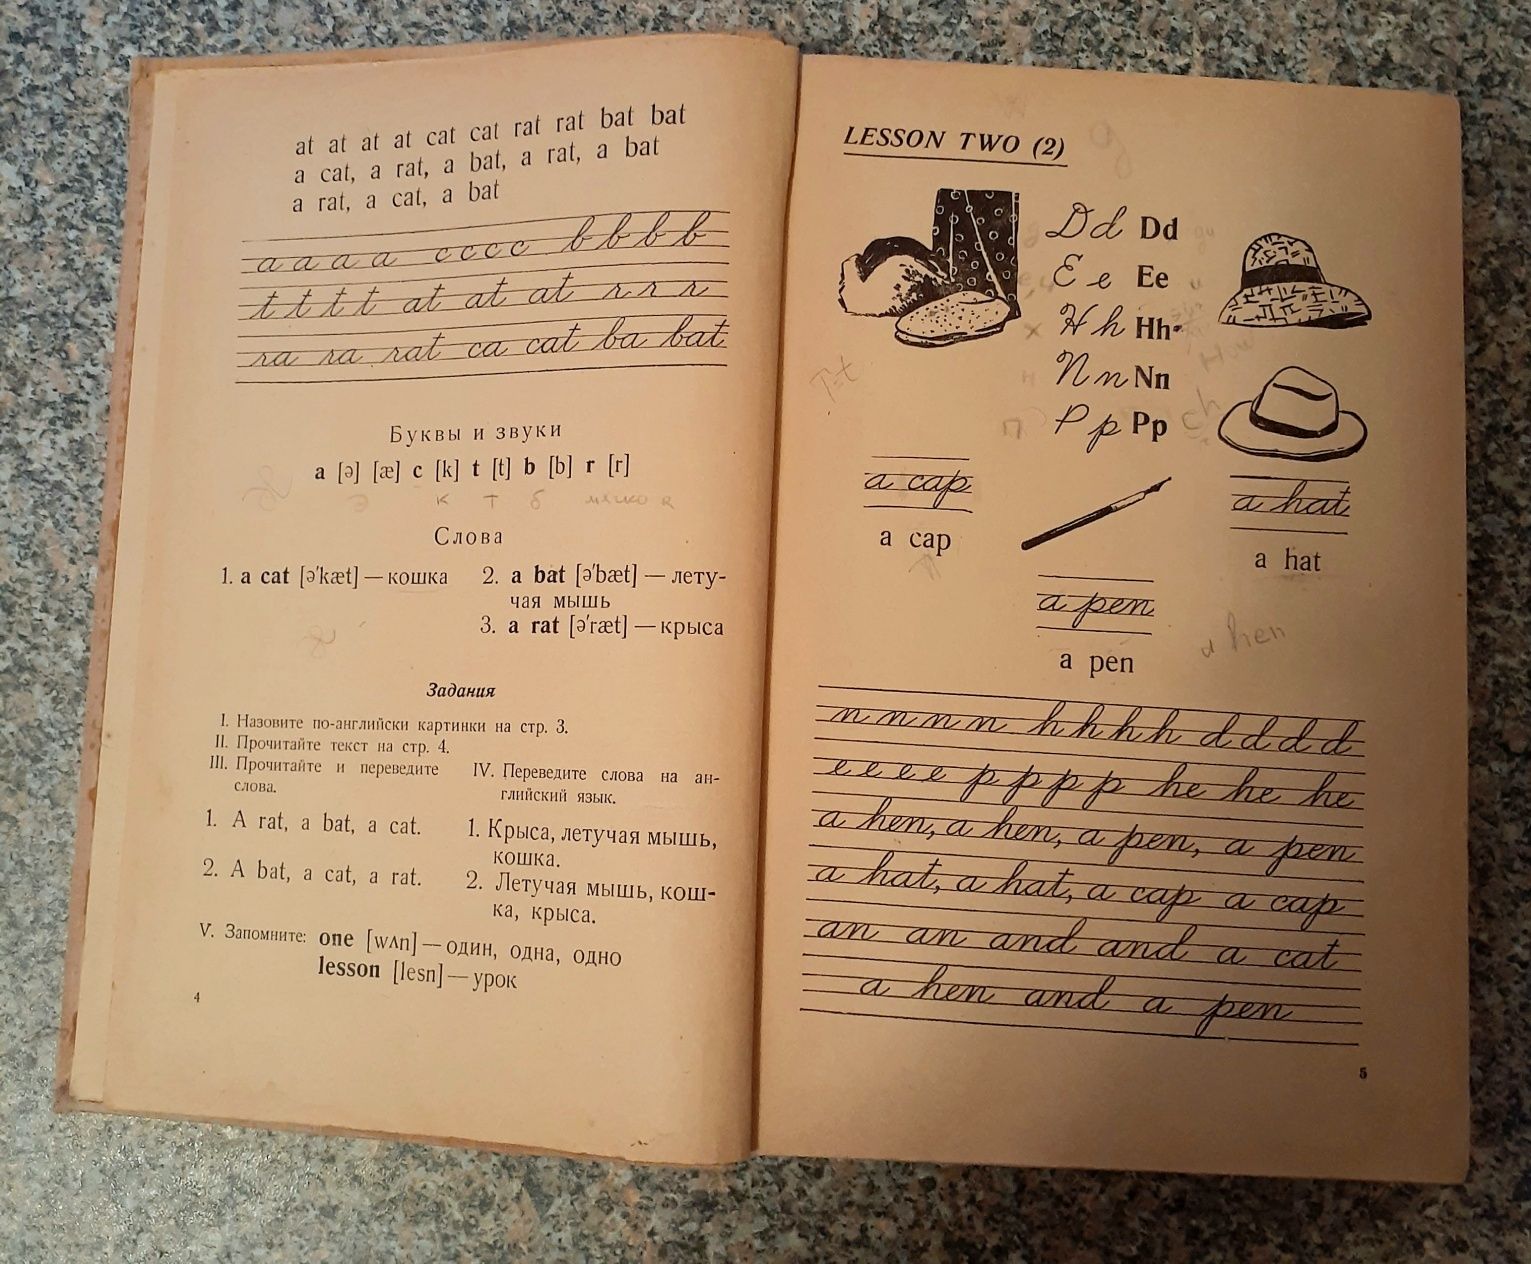 at at at at cat cat rat rat bat bat
a cat, a rat, a bat, a rat, a bat
a rat, a cat, a bat
a a a a c c c c b b b b
t t t t at at at r r r
ra ra rat ca cat ba bat
Буквы и звуки
a [ə] [æ] c [k] t [t] b [b] r [r]
э к т б мягко
Слова
1. a cat [ə'kæt] — кошка
2. a bat [ə'bæt] — лету-
чая мышь
3. a rat [ə'ræt] — крыса
Задания
I. Назовите по-английски картинки на стр. 3.
II. Прочитайте текст на стр. 4.
III. Прочитайте и переведите
слова.
1. A rat, a bat, a cat.
2. A bat, a cat, a rat.
IV. Переведите слова на ан-
глийский язык.
1. Крыса, летучая мышь,
кошка.
2. Летучая мышь, кош-
ка, крыса.
V. Запомните: one [wʌn] — один, одна, одно
lesson [lesn] — урок
4
LESSON TWO (2)
D d Dd
E e Ee
х H h Hh
н N n Nn
п P p Pp
T-t
ch
a cap
a cap
a hat
a hat
a pen
a pen
a hen
n n n n h h h h d d d d
e e e e p p p p he he he
a hen, a hen, a pen, a pen
a hat, a hat, a cap a cap
an an and and a cat
a hen and a pen
5